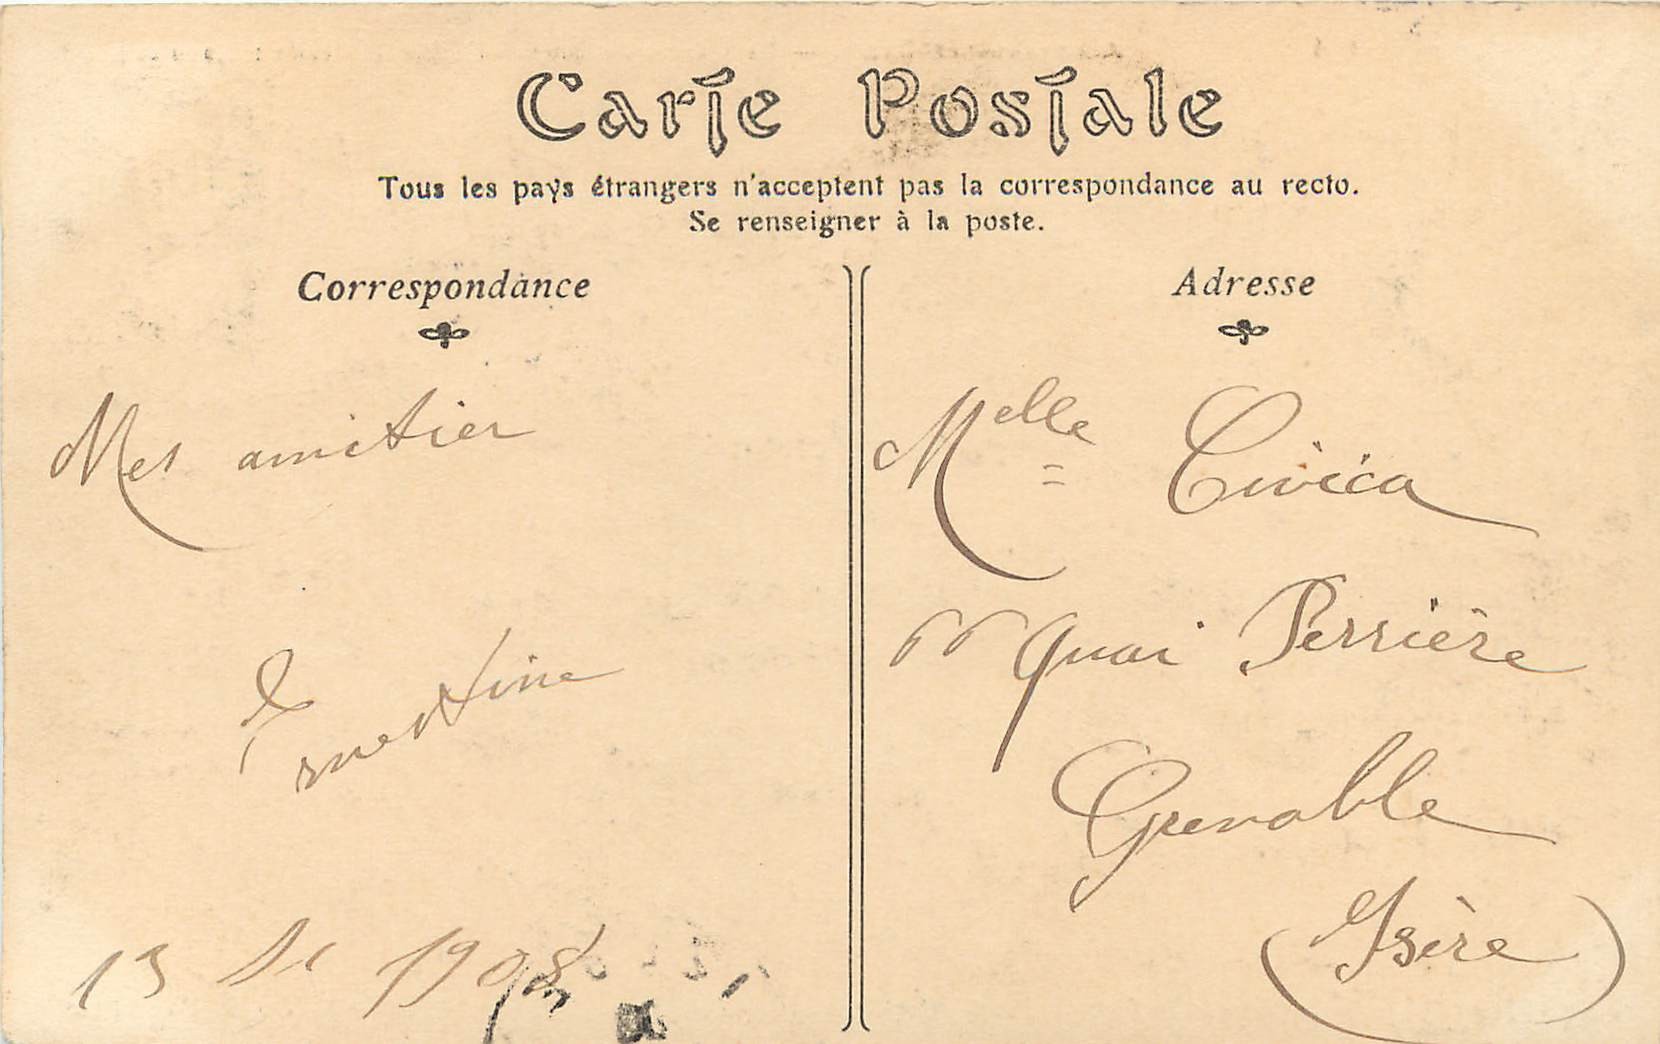 Carte Postale
Tous les pays étrangers n'acceptent pas la correspondance au recto.
Se renseigner à la poste.
Correspondance
Mes amitier
Ernestine
13 1908
Adresse
Melle Civica
66 quai Perrière
Grenoble
(Isère)